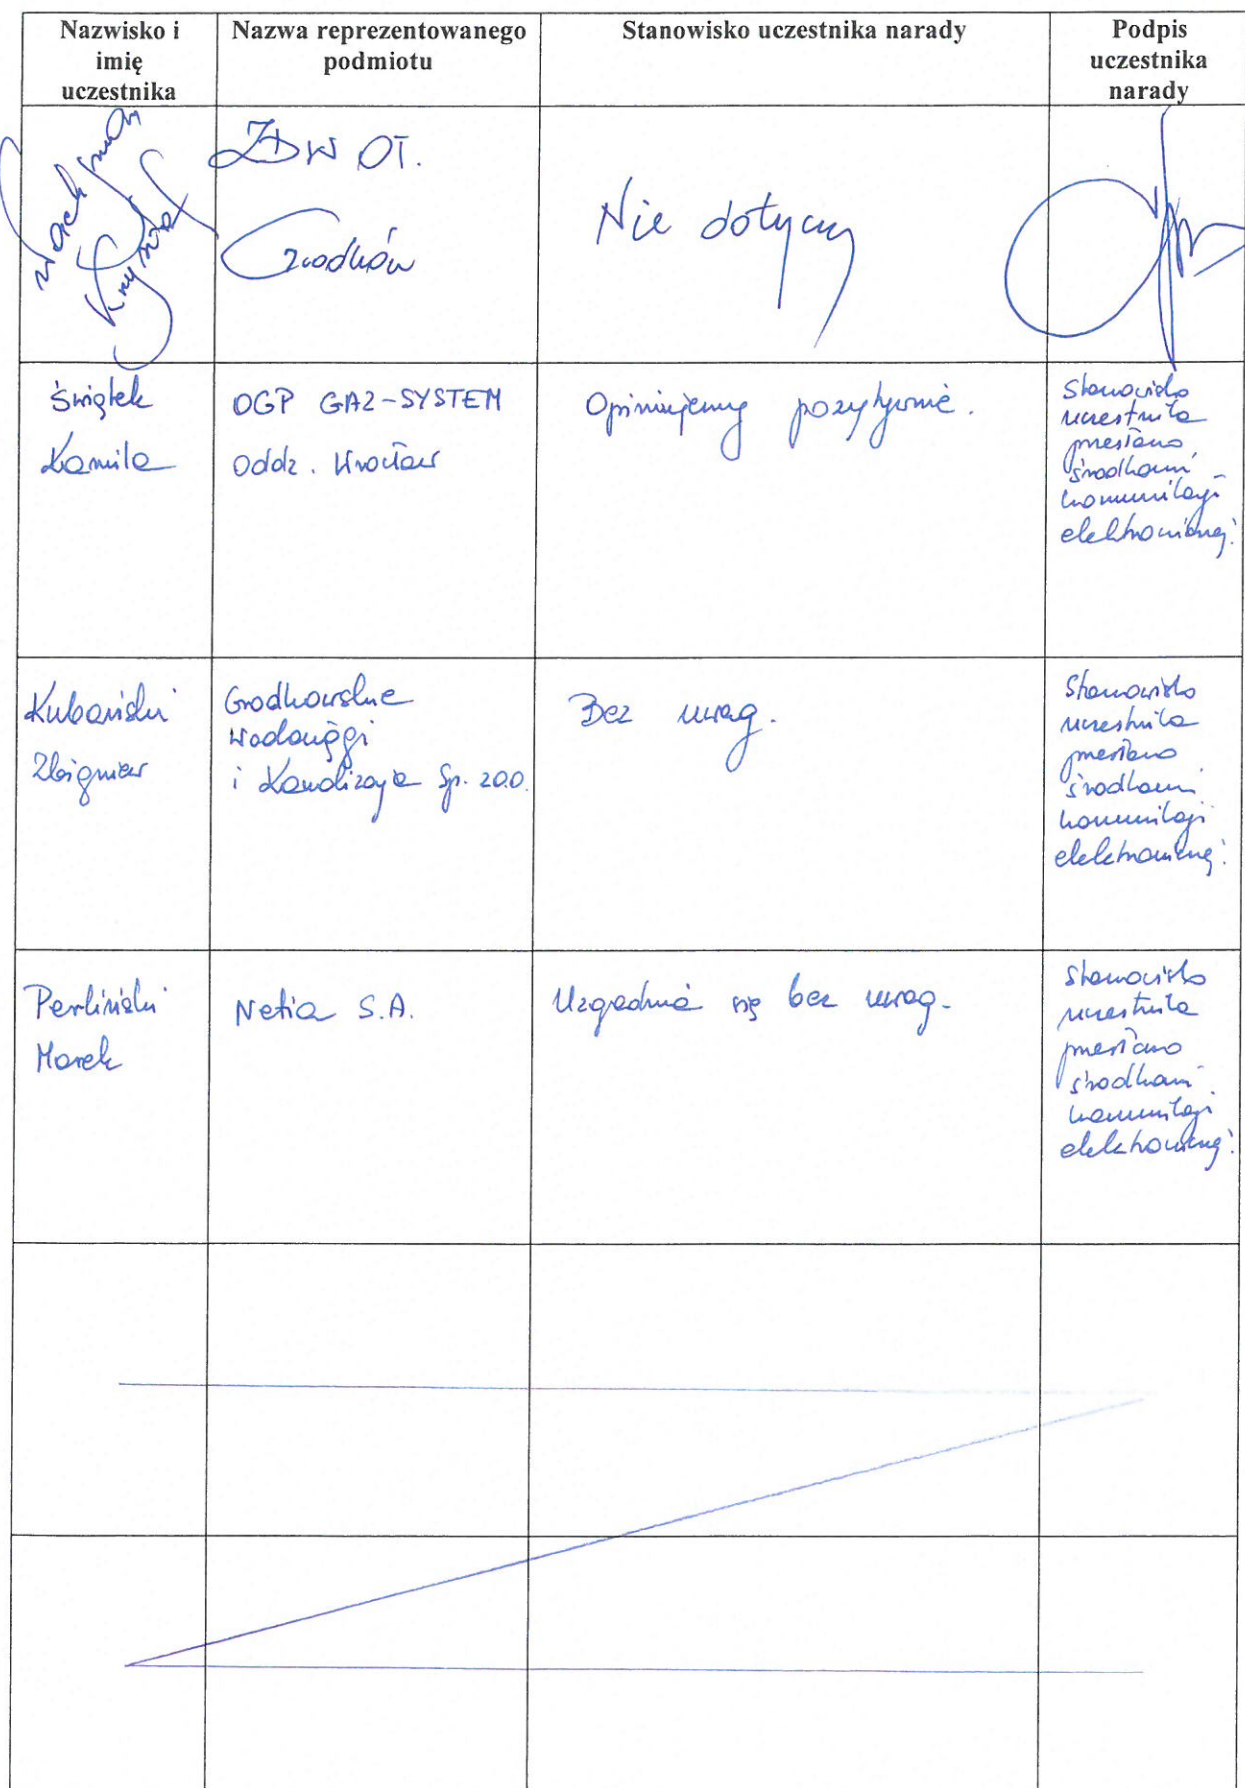 Nazwisko i
imię
uczestnika
Nazwa reprezentowanego
podmiotu
Stanowisko uczestnika narady
Podpis
uczestnika
narady
ZDW OT.
Grodków
Nie dotyczy
Świątek
Kamila
OGP GAZ-SYSTEM
Oddz. Wrocław
Opiniujemy pozytywnie.
Stanowisko
uczestnika
przesłano
środkami
komunikacji
elektronicznej.
Kubański
Zbigniew
Grodkowskie
Wodociągi
i Kanalizacja Sp. z o.o.
Bez uwag.
Stanowisko
uczestnika
przesłano
środkami
komunikacji
elektronicznej.
Perliński
Marek
Netia S.A.
Uzgadnia się bez uwag.
Stanowisko
uczestnika
przesłano
środkami
komunikacji
elektronicznej.